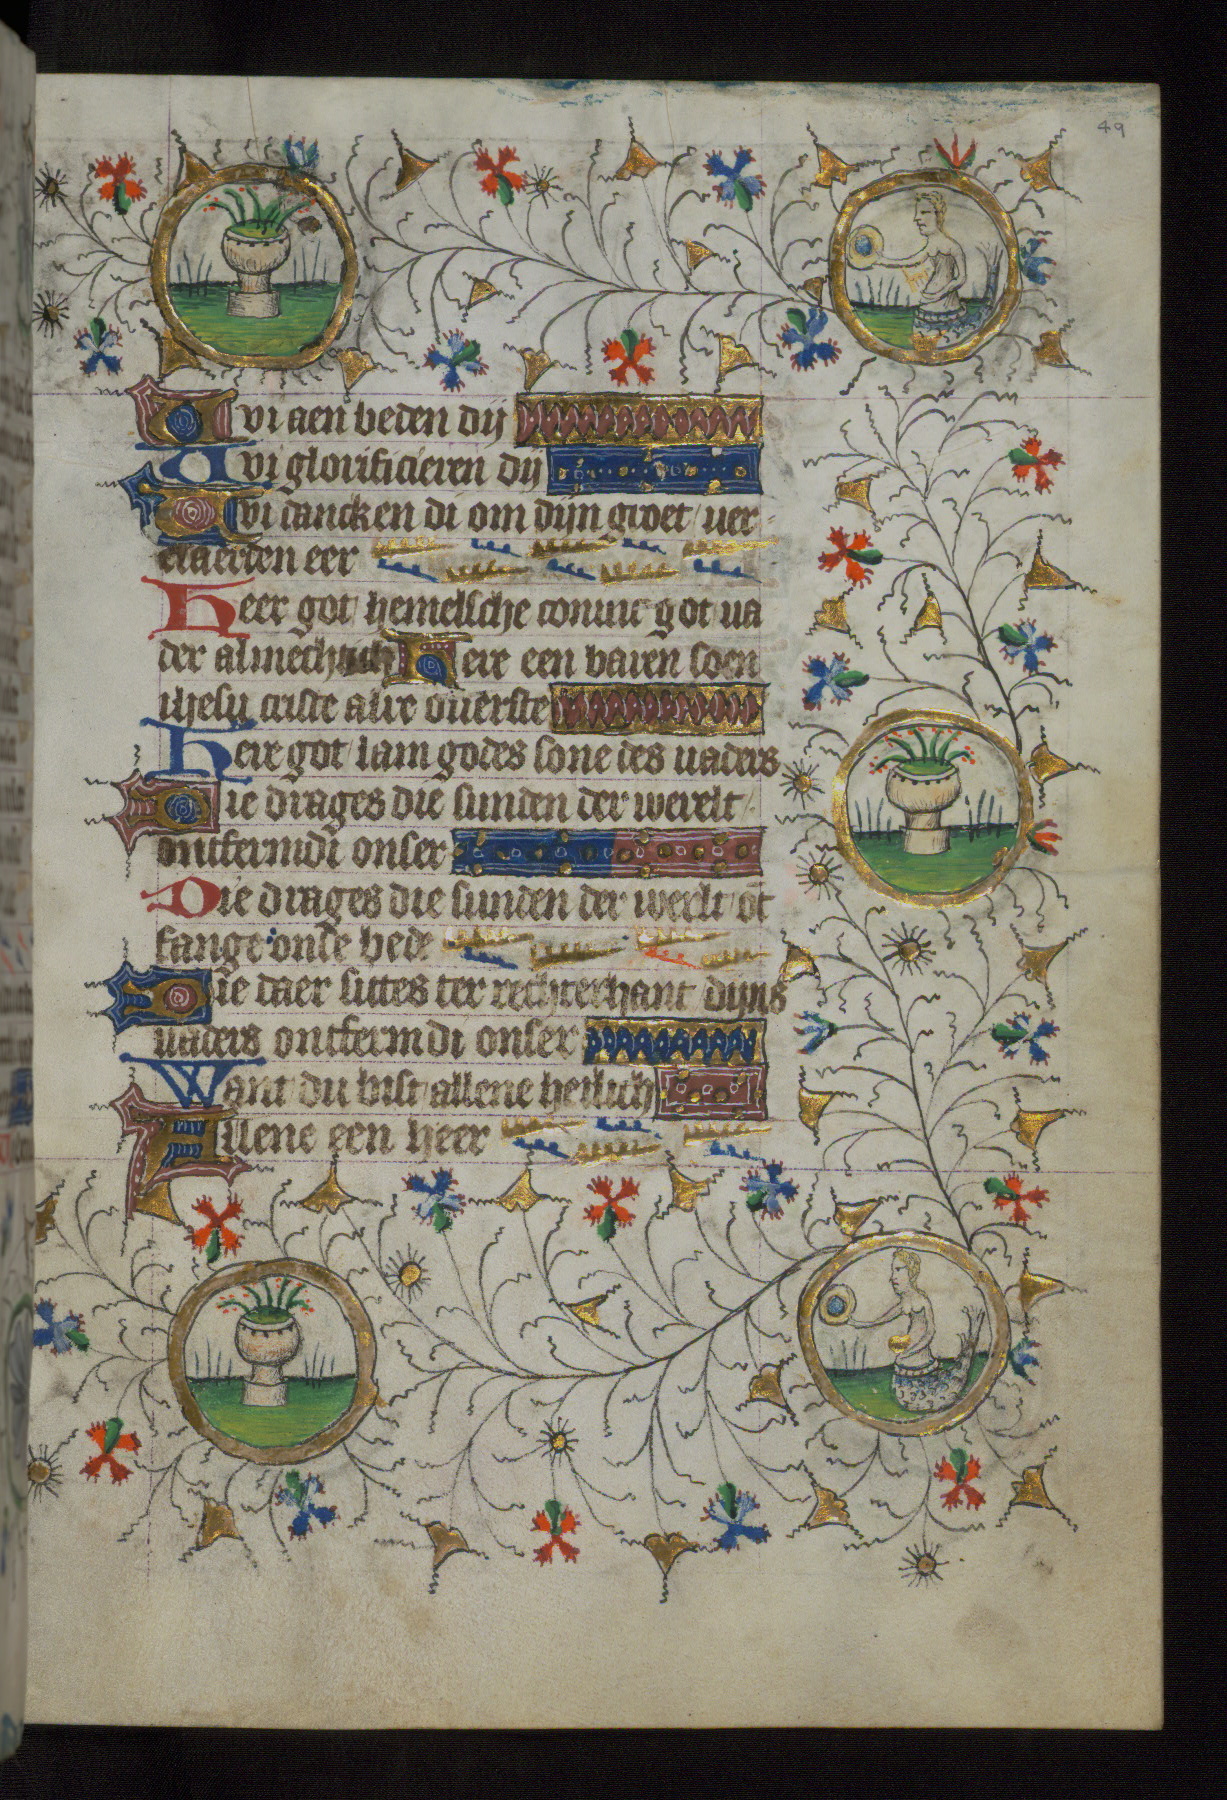 49
wi aen beden dij
wi glorificieren dij
wi dancken di om dijn groet ver-
claerden eer
Heer got hemelsche coninc got va
der almechtich Heire een baren soen
ihesu criste alre ouerste
Heire got lam godes sone des uaders
Die drages die sunden der werelt
ontfermdi onser
Die drages die sunden der werlt ōt
fange onse bede
Die daer sittes ter rechterhant dijns
uaders ontferm di onser
Want du bist allene heilich
Allene een heer